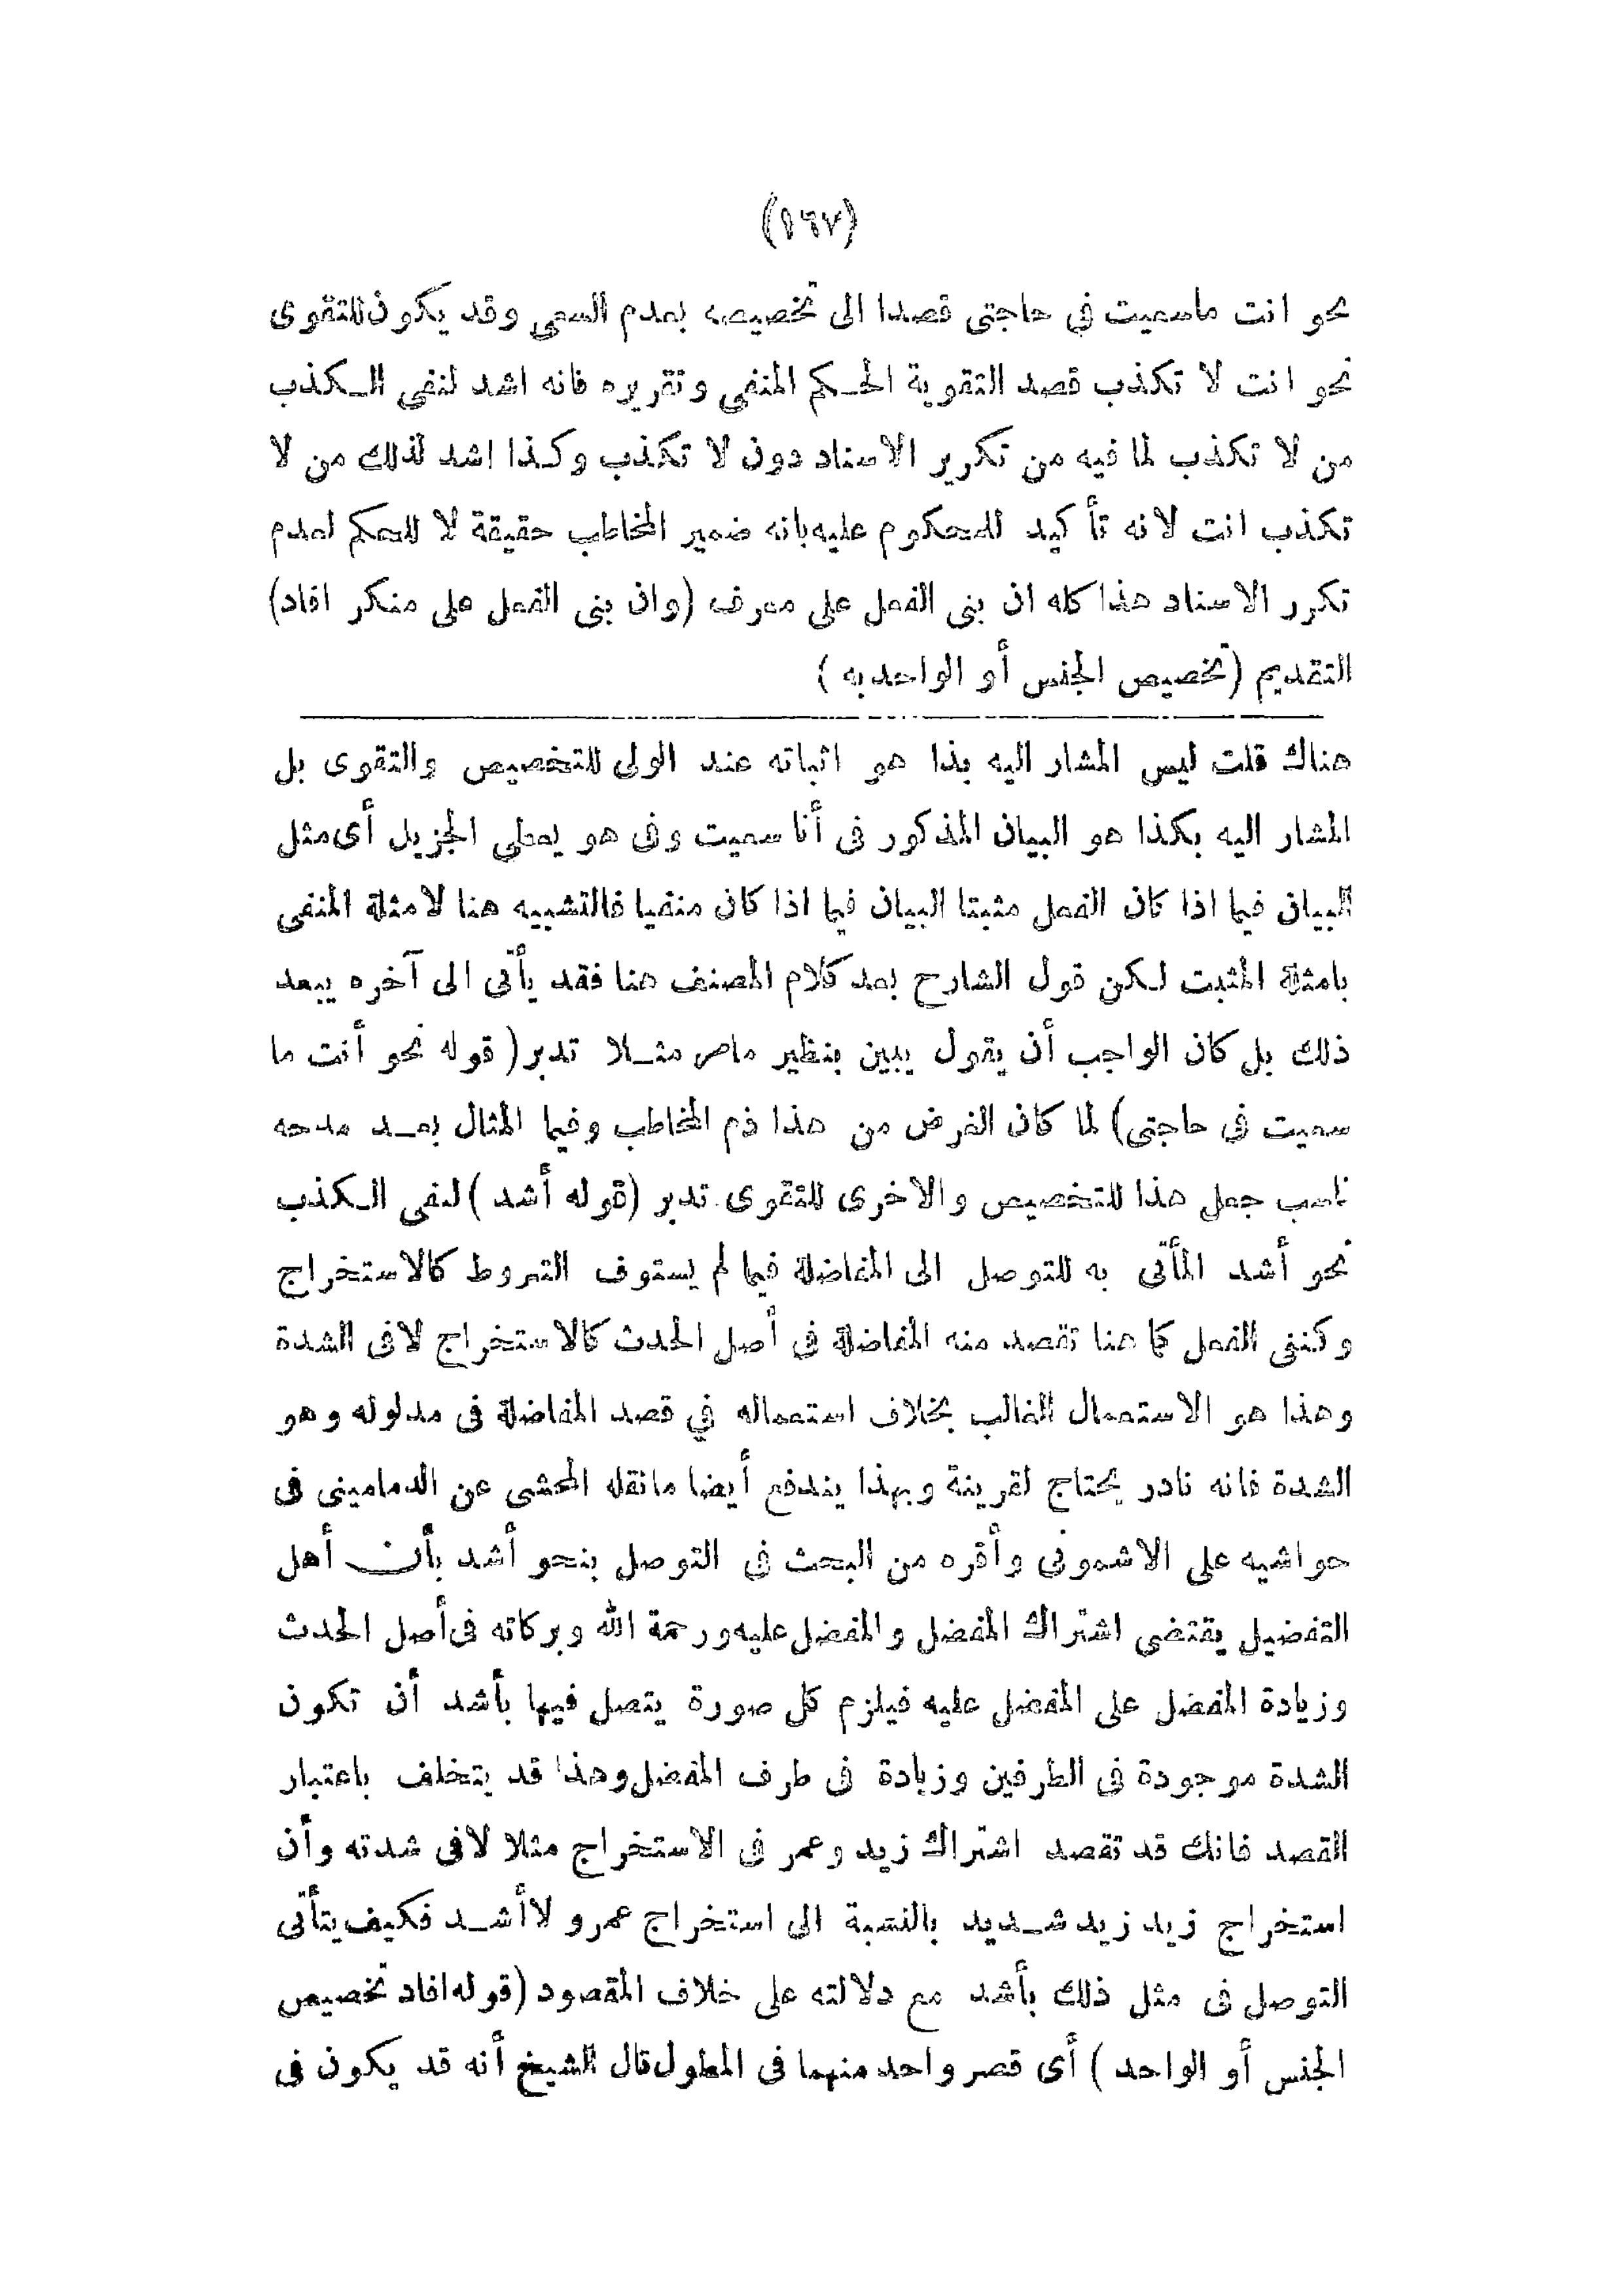 (١٦٧)
نحو انت ماسعيت في حاجتى قصدا الى تخصيصه بعدم السعى وقد يكون للتقوى
نحو انت لا تكذب قصد التقوية الحكم المنفى وتقريره فانه اشد لنفى الكذب
من لا تكذب لما فيه من تكرير الاسناد دون لا تكذب وكذا اشد لذلك من لا
تكذب انت لانه تأكيد للمحكوم عليه بانه ضمير المخاطب حقيقة لا للحكم لعدم
تكرر الاسناد هذا كله ان بنى الفعل على معرف (وان بنى الفعل على منكر افاد)
التقديم (تخصيص الجنس أو الواحد به )
هناك قلت ليس المشار اليه بذا هو اثباته عند الولى للتخصيص والتقوى بل
المشار اليه بكذا هو البيان المذكور فى أنا سعيت وفى هو يعطى الجزيل أى مثل
البيان فيما اذا كان الفعل مثبتا البيان فيما اذا كان منفيا فالتشبيه هنا لامثلة المنفى
بامثلة المثبت لكن قول الشارح بعد كلام المصنف هنا فقد يأتى الى آخره يبعد
ذلك بل كان الواجب أن يقول يبين بنظير مامر مثلا تدبر ( قوله نحو أنت ما
سعيت فى حاجتى) لما كان الغرض من هذا ذم المخاطب وفيما المثال بعد مدحه
ناسب جعل هذا للتخصيص والاخرى للتقوى تدبر (قوله أشد ) لنفى الكذب
نحو أشد المأتى به للتوصل الى المفاضلة فيما لم يستوف الشروط كالاستخراج
وكنفى الفعل كما هنا تقصد منه المفاضلة فى أصل الحدث كالاستخراج لا فى الشدة
وهذا هو الاستعمال الغالب بخلاف استعماله في قصد المفاضلة فى مدلوله وهو
الشدة فانه نادر يحتاج لقرينة وبهذا يندفع أيضا مانقله المحشى عن الدمامينى فى
حواشيه على الاشمونى وأقره من البحث فى التوصل بنحو أشد بأن أهل
التفضيل يقتضى اشتراك المفضل والمفضل عليه ورحمة الله وبركاته فى أصل الحدث
وزيادة المفضل على المفضل عليه فيلزم كل صورة يتصل فيها بأشد أن تكون
الشدة موجودة فى الطرفين وزيادة فى طرف المفضل وهذا قد يتخلف باعتبار
القصد فانك قد تقصد اشتراك زيد وعمر فى الاستخراج مثلا لا فى شدته وأن
استخراج زيد زيد شديد بالنسبة الى استخراج عمرو لا أشد فكيف يتأتى
التوصل فى مثل ذلك بأشد مع دلالته على خلاف المقصود (قوله افاد تخصيص
الجنس أو الواحد ) أى قصر واحد منهما فى المطول قال الشيخ أنه قد يكون فى